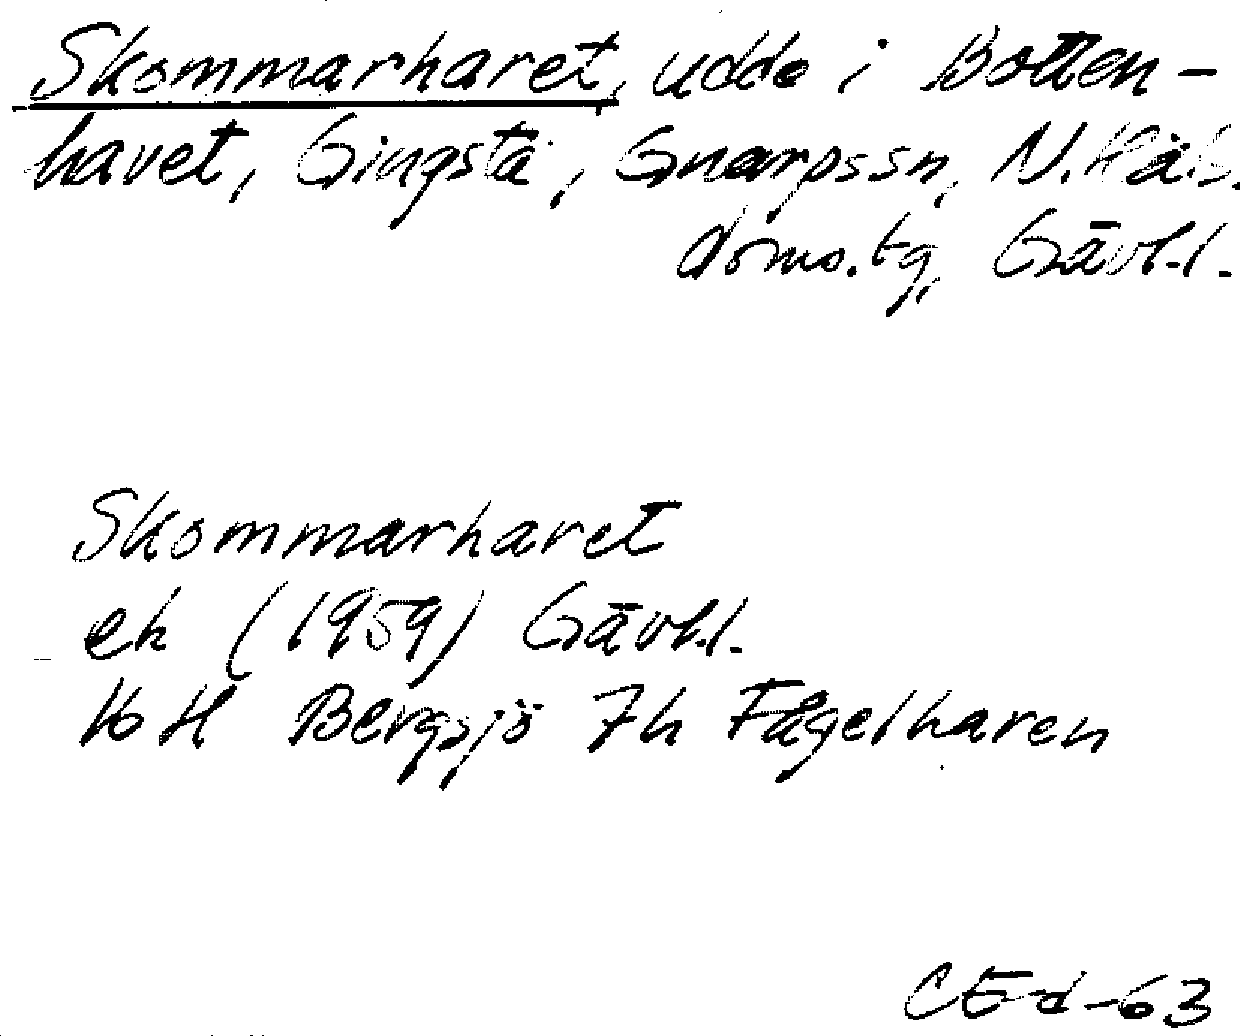 Skommarharet, udde i Botten-
havet, Gingsta, Gnarpssn, N. Häls.
doms.tg, Gävl.l.
Skommarharet
ek (1959) Gävl.l.
16 H Bergsjö 7h Fågelharen
CEd-63